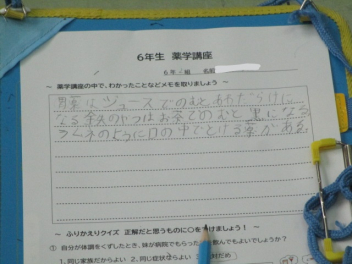 6年生 薬学講座
6年 組 名前
～ 薬学講座の中で、わかったことなどメモを取りましょう ～
胃薬はジュースでのむとあわだらけに
なる 鉄のやつはお茶でのむと黒になる
ラムネのように口の中でとける薬がある。
～ ふりかえりクイズ 正解だと思うものに○を付けましょう！ ～
① 自分が体調をくずしたとき、妹が病院でもらった 飲んでもよいでしょうか？
1. 同じ家族だからよい 2. 同じ症状 よい だめ